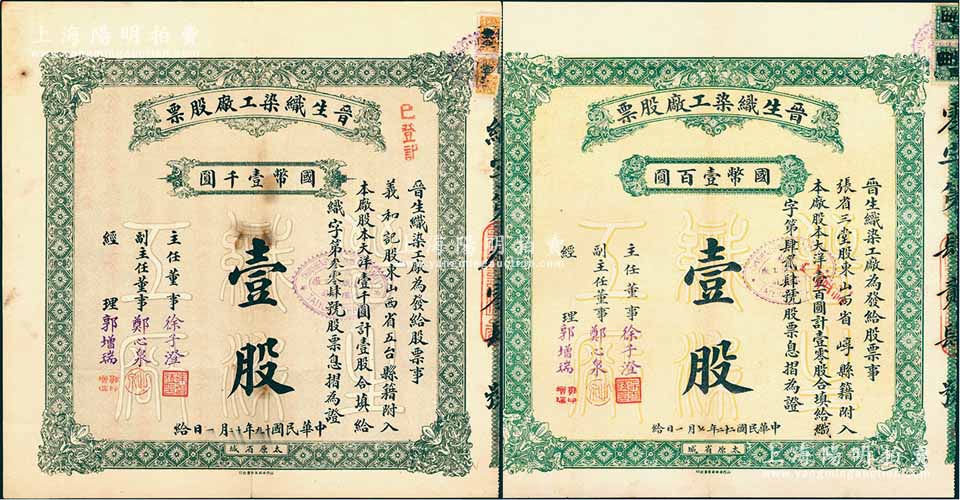 上海陽明拍賣
晉生織染工廠股票
國幣壹千圓
已登記
晉生織染工廠為發給股票事
義和記股東山西省五台縣籍附入
本廠股本大洋壹千圓計壹股合填給
織字第叁零肆號股票息摺為證
壹股
主任董事 徐子澄
副主任董事 鄭心泉
經理 郭增瑞
中華民國十九年十二月一日給
太原省城
晉生織染工廠股票
國幣壹百圓
晉生織染工廠為發給股票事
張省三堂股東山西省崞縣籍附入
本廠股本大洋壹百圓計壹零股合填給織
字第肆貳肆號股票息摺為證
壹股
主任董事 徐子澄
副主任董事 鄭心泉
經理 郭增瑞
太原省城
上海陽明拍賣
www.yangmingauction.com